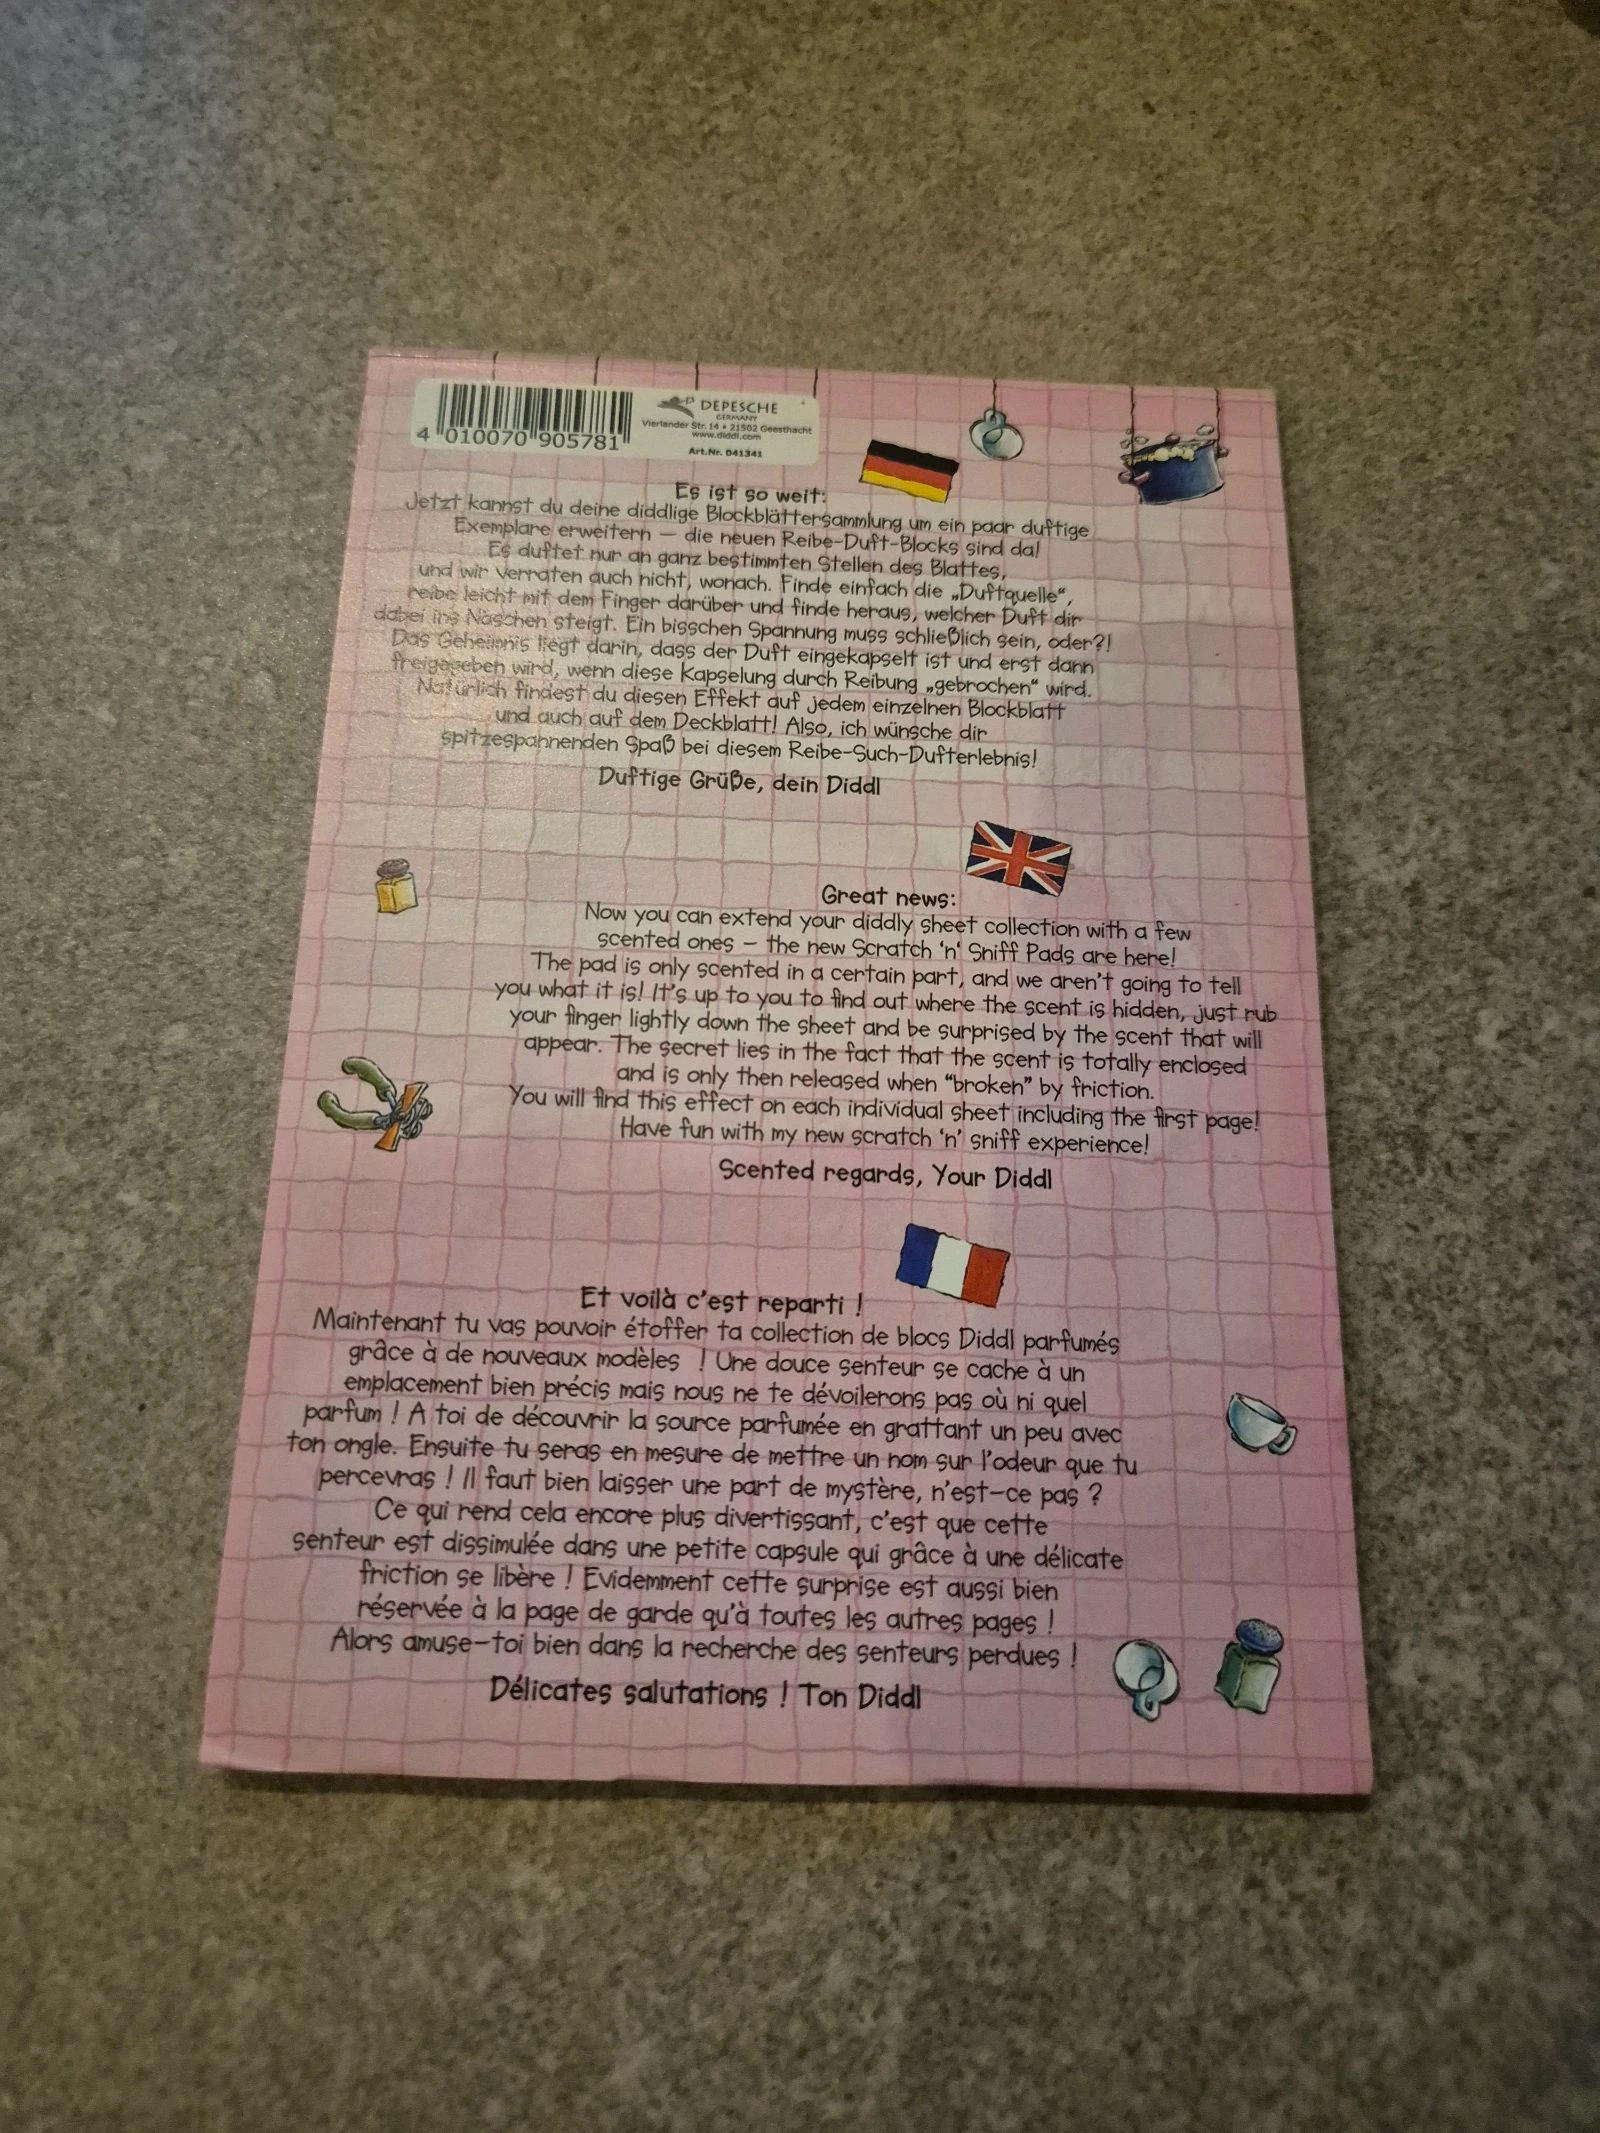 4 010070 905781
DEPESCHE
GERMANY
Vierlander Str. 14 • 21502 Geesthacht
www.diddl.com
Art.Nr. 041341
Es ist so weit:
Jetzt kannst du deine diddlige Blockblättersammlung um ein paar duftige
Exemplare erweitern – die neuen Reibe-Duft-Blocks sind da!
Es duftet nur an ganz bestimmten Stellen des Blattes,
und wir verraten auch nicht, wonach. Finde einfach die „Duftquelle“,
reibe leicht mit dem Finger darüber und finde heraus, welcher Duft dir
dabei ins Näschen steigt. Ein bisschen Spannung muss schließlich sein, oder?!
Das Geheimnis liegt darin, dass der Duft eingekapselt ist und erst dann
freigegeben wird, wenn diese Kapselung durch Reibung „gebrochen“ wird.
Natürlich findest du diesen Effekt auf jedem einzelnen Blockblatt
und auch auf dem Deckblatt! Also, ich wünsche dir
spitzespannenden Spaß bei diesem Reibe-Such-Dufterlebnis!
Duftige Grüße, dein Diddl
Great news:
Now you can extend your diddly sheet collection with a few
scented ones – the new Scratch ‘n‘ Sniff Pads are here!
The pad is only scented in a certain part, and we aren't going to tell
you what it is! It's up to you to find out where the scent is hidden, just rub
your finger lightly down the sheet and be surprised by the scent that will
appear. The secret lies in the fact that the scent is totally enclosed
and is only then released when “broken” by friction.
You will find this effect on each individual sheet including the first page!
Have fun with my new scratch ‘n’ sniff experience!
Scented regards, Your Diddl
Et voilà c'est reparti !
Maintenant tu vas pouvoir étoffer ta collection de blocs Diddl parfumés
grâce à de nouveaux modèles ! Une douce senteur se cache à un
emplacement bien précis mais nous ne te dévoilerons pas où ni quel
parfum ! A toi de découvrir la source parfumée en grattant un peu avec
ton ongle. Ensuite tu seras en mesure de mettre un nom sur l'odeur que tu
percevras ! Il faut bien laisser une part de mystère, n'est-ce pas ?
Ce qui rend cela encore plus divertissant, c'est que cette
senteur est dissimulée dans une petite capsule qui grâce à une délicate
friction se libère ! Evidemment cette surprise est aussi bien
réservée à la page de garde qu'à toutes les autres pages !
Alors amuse-toi bien dans la recherche des senteurs perdues !
Délicates salutations ! Ton Diddl